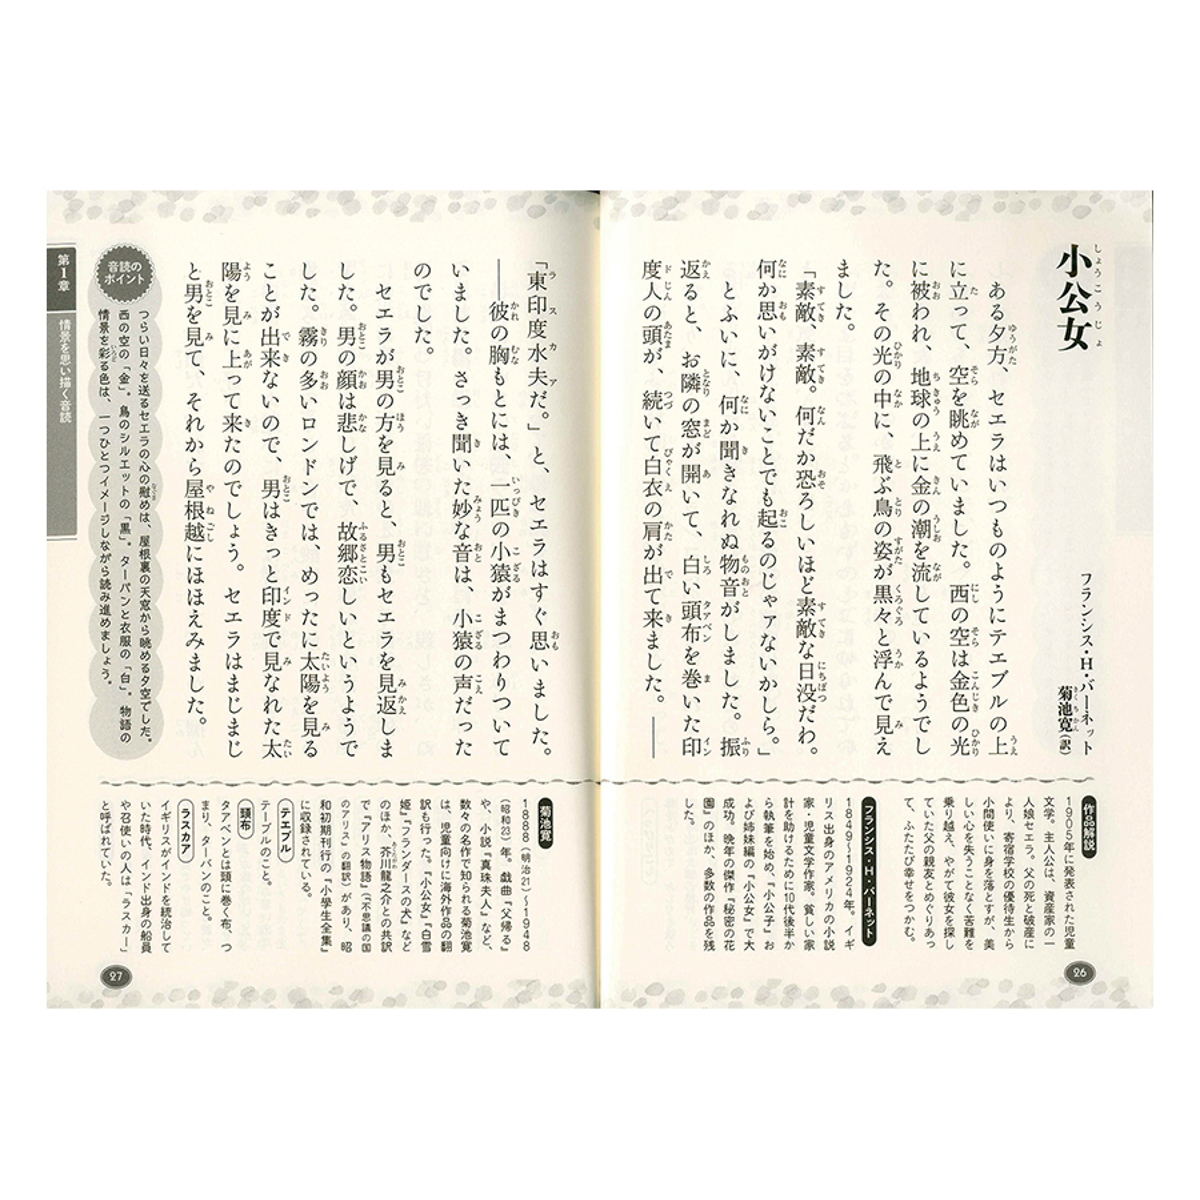 小公女
フランシス・H・バーネット
菊池寛(訳)
ある夕方、セエラはいつものようにテエブルの上
に立って、空を眺めていました。西の空は金色の光
に被われ、地球の上に金の潮を流しているようでし
た。その光の中に、飛ぶ鳥の姿が黒々と浮んで見え
ました。
「素敵、素敵。何だか恐ろしいほど素敵な日没だわ。
何か思いがけないことでも起るのじゃァないかしら。」
とふいに、何か聞きなれぬ物音がしました。振
返ると、お隣の窓が開いて、白い頭布を巻いた印
度人の頭が、続いて白衣の肩が出て来ました。――
作品解説
1905年に発表された児童
文学。主人公は、資産家の一
人娘セエラ。父の死と破産に
より、寄宿学校の優待生から
小間使いに身を落とすが、美
しい心を失うことなく苦難を
乗り越え、やがて彼女を探し
ていた父の親友とめぐりあっ
て、ふたたび幸せをつかむ。
フランシス・H・バーネット
1849〜1924年。イギ
リス出身のアメリカの小説
家・児童文学作家。貧しい家
計を助けるために10代後半か
ら執筆を始め、『小公子』お
よび姉妹編の『小公女』で大
成功。晩年の傑作『秘密の花
園』のほか、多数の作品を残
した。
26
「東印度水夫だ。」と、セエラはすぐ思いました。
――彼の胸もとには、一匹の小猿がまつわりついて
いました。さっき聞いた妙な音は、小猿の声だった
のでした。
セエラが男の方を見ると、男もセエラを見返しま
した。男の顔は悲しげで、故郷恋しいというようで
した。霧の多いロンドンでは、めったに太陽を見る
ことが出来ないので、男はきっと印度で見なれた太
陽を見に上って来たのでしょう。セエラはまじまじ
と男を見て、それから屋根越にほほえみました。
音読の
ポイント
つらい日々を送るセエラの心の慰めは、屋根裏の天窓から眺める夕空でした。
西の空の「金」。鳥のシルエットの「黒」。ターバンと衣服の「白」。物語の
情景を彩る色は、一つひとつイメージしながら読み進めましょう。
第1章
情景を思い描く音読
菊池寛
1888(明治21)〜1948
(昭和23)年。戯曲『父帰る』
や、小説『真珠夫人』など、
数々の名作で知られる菊池寛
は、児童向けに海外作品の翻
訳も行った。『小公女』『白雪
姫』『フランダースの犬』など
のほか、芥川龍之介との共訳
で『アリス物語』(『不思議の国
のアリス』の翻訳)があり、昭
和初期刊行の『小學生全集』
に収録されている。
テエブル
テーブルのこと。
頭布
タアベンとは頭に巻く布、つ
まり、ターバンのこと。
ラスカア
イギリスがインドを統治して
いた時代、インド出身の船員
や召使いの人は「ラスカー」
と呼ばれていた。
27